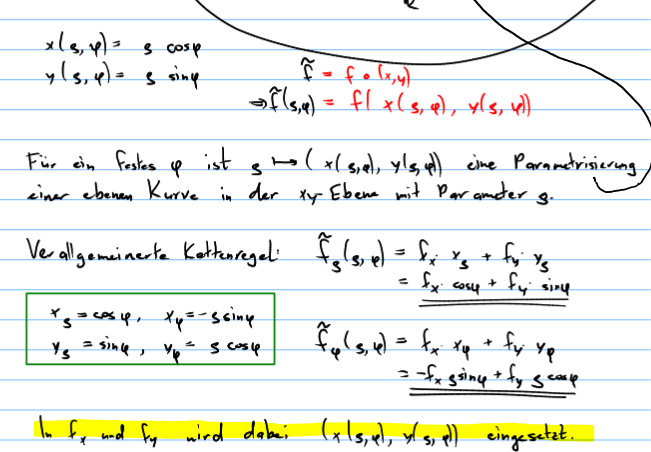 x(ρ,φ) = ρ cosφ
y(ρ,φ) = ρ sinφ
f̃ = f ∘ (x,y)
⇒ f̃(ρ,φ) = f( x(ρ,φ), y(ρ,φ))
Für ein festes φ ist ρ ↦ (x(ρ,φ), y(ρ,φ)) eine Parametrisierung
einer ebenen Kurve in der xy-Ebene mit Parameter ρ.
Verallgemeinerte Kettenregel: f̃_ρ(ρ,φ) = f_x · x_ρ + f_y · y_ρ
= f_x · cosφ + f_y · sinφ
x_ρ = cosφ, x_φ = -ρ sinφ
y_ρ = sinφ, y_φ = ρ cosφ
f̃_φ(ρ,φ) = f_x · x_φ + f_y · y_φ
= -f_x ρ sinφ + f_y ρ cosφ
In f_x und f_y wird dabei (x(ρ,φ), y(ρ,φ)) eingesetzt.